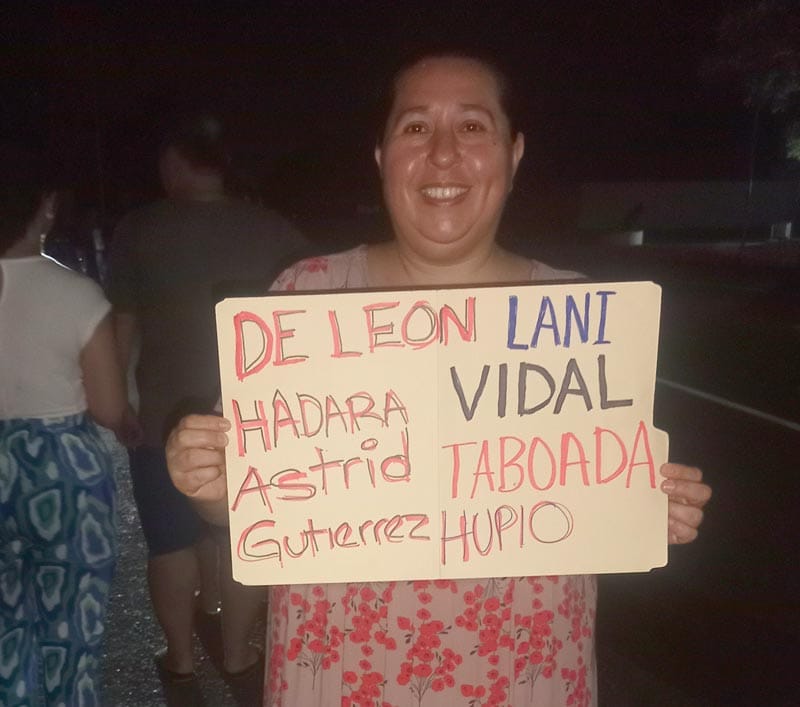 DE LEON LANI
HADARA VIDAL
Astrid TABOADA
Gutierrez HUPIO